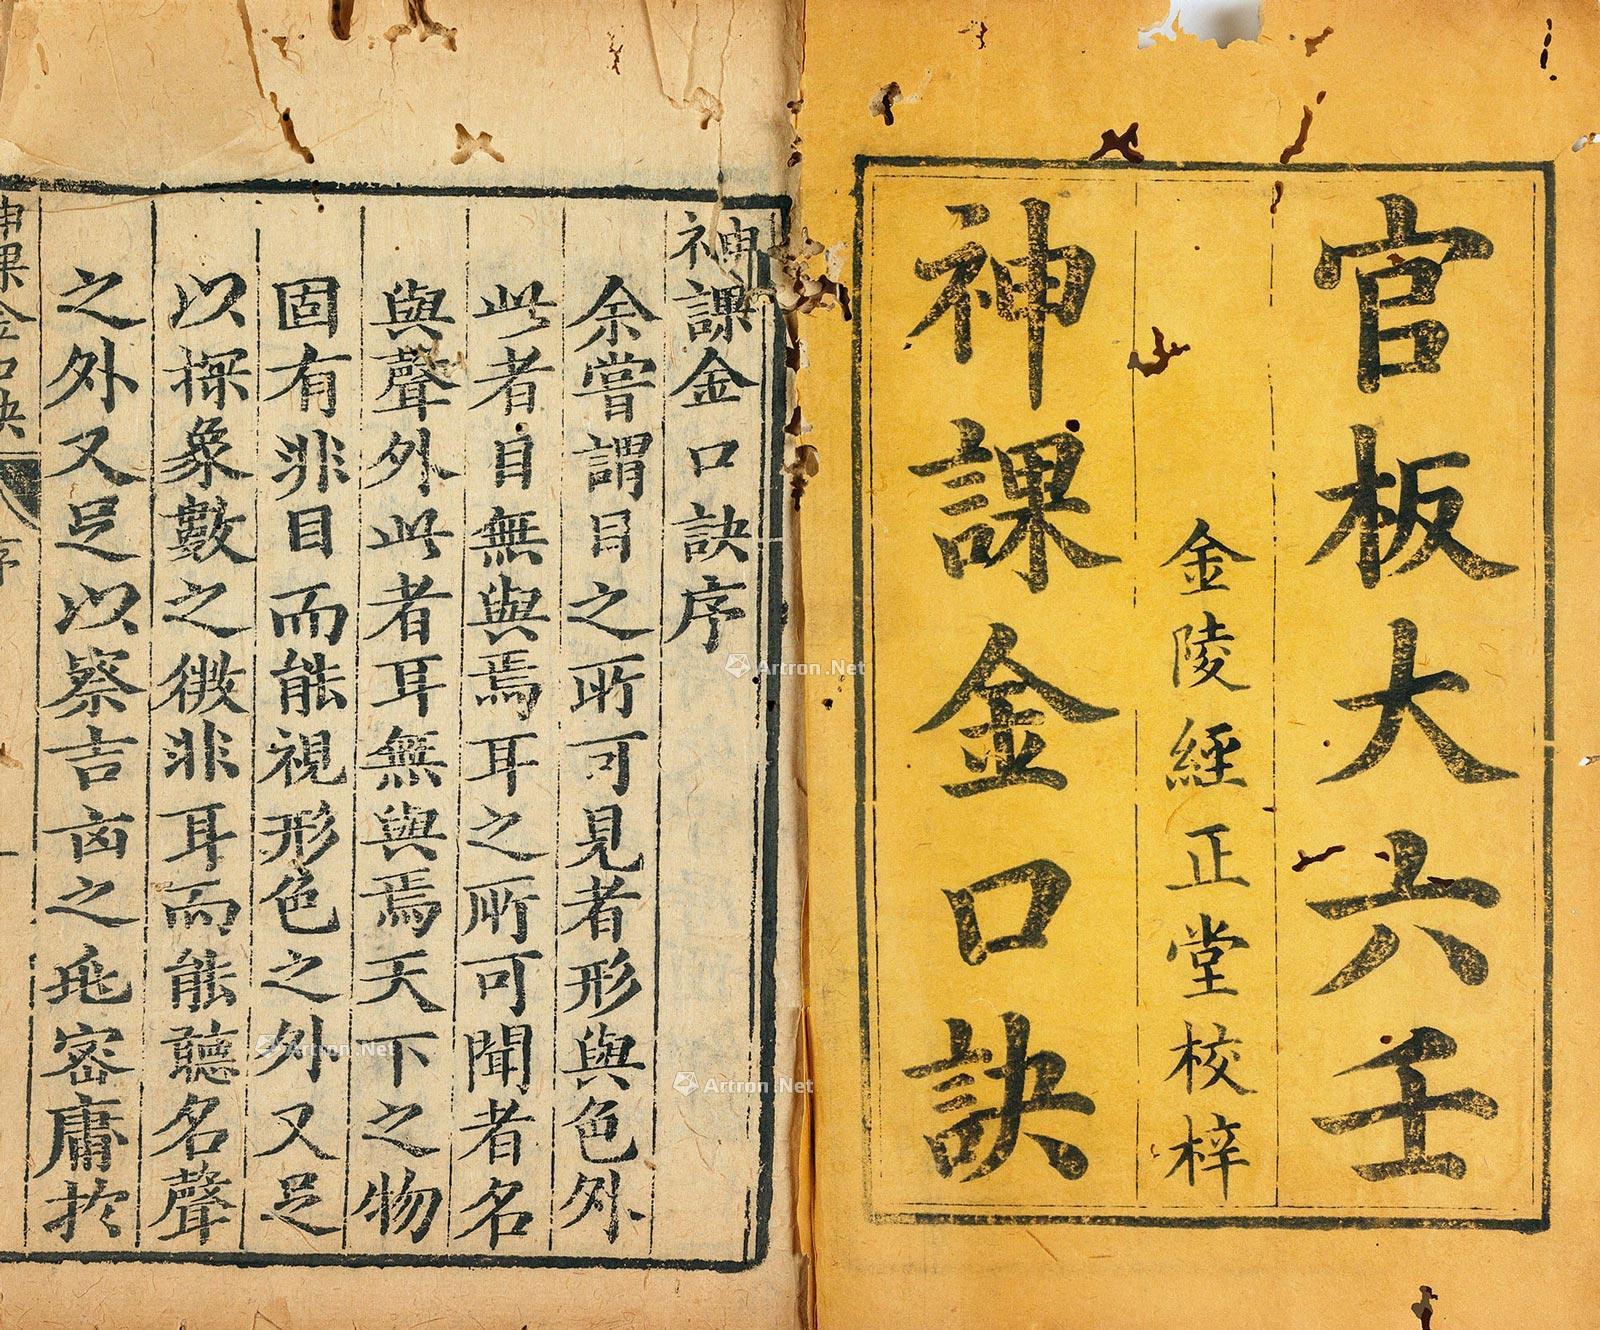 官板大六壬
金陵經正堂校梓
神課金口訣
神課金口訣序
余嘗謂目之所可見者形與色外
此者目無與焉耳之所可聞者名
與聲外此者耳無與焉天下之物
固有非目而能視形色之外又足
以探象數之微非耳而能聽名聲
之外又足以察吉凶之兆密庸於
神課金口訣
序
一
Artron.Net
Artron.Net
Artron.Net